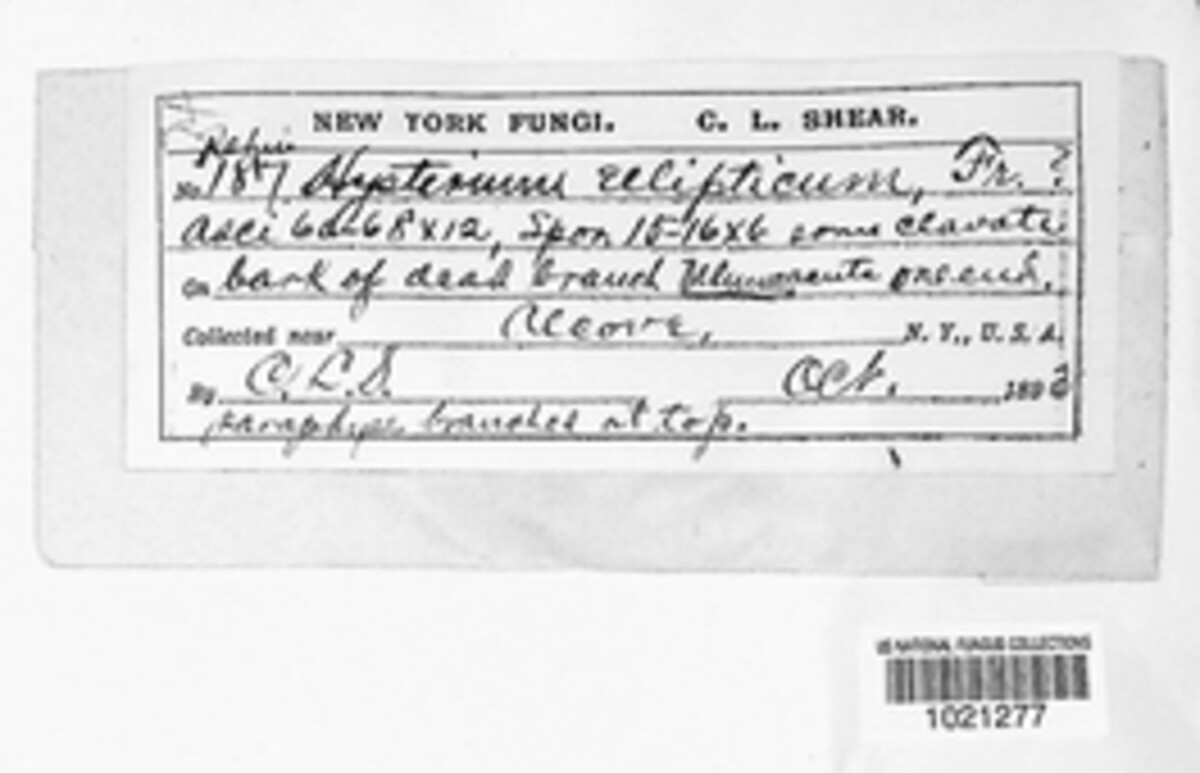 NEW YORK FUNGI. C. L. SHEAR.
Rehm
No. 187 Hysterium ellipticum, Fr. ?
asci 60-68x12, Spor 15-16x6 some clavate
On bark of dead branch Ulmus acute one end.
Collected near Alcove, N. Y., U. S. A.
By C. L. S. Oct. 1893
paraphyses branched at top.
US NATIONAL FUNGUS COLLECTIONS
1021277